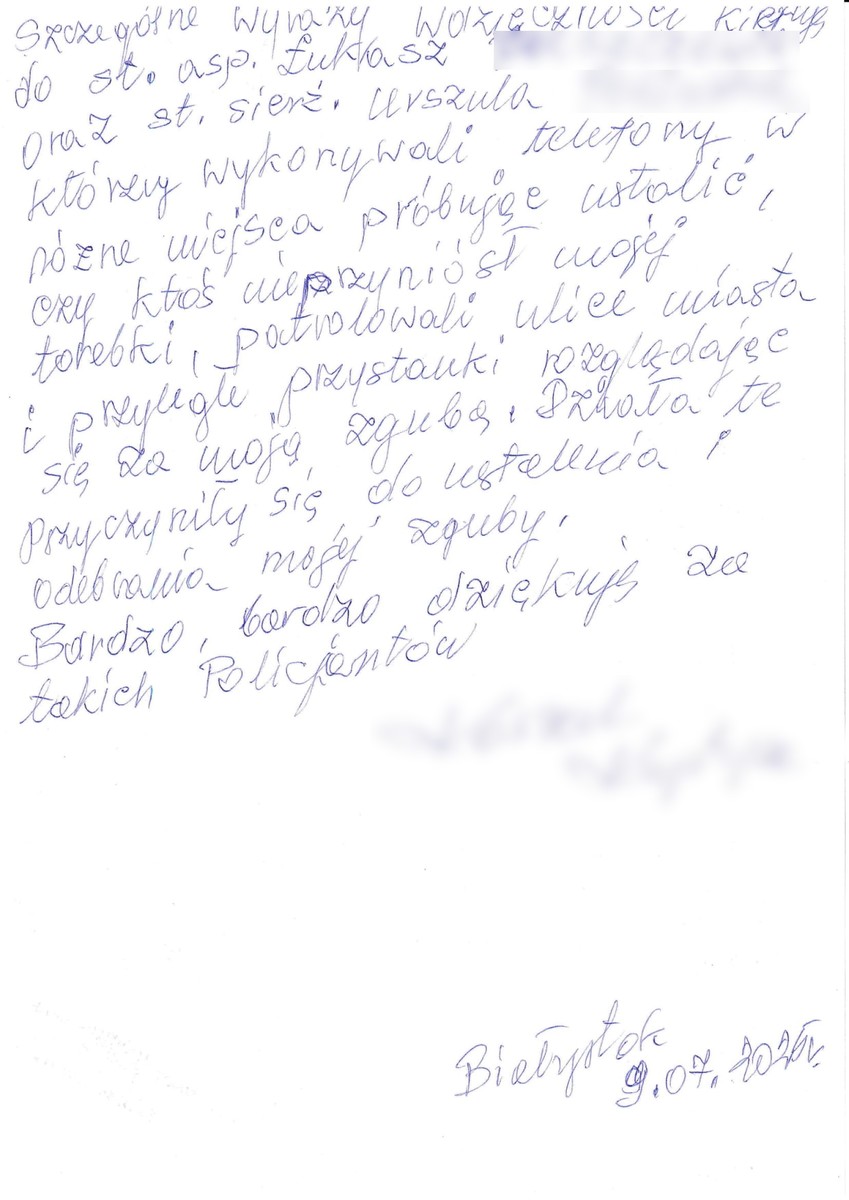 Szczególne wyrazy wdzięczności kieruję
do st. asp. Łukasz
oraz st. sierż. Urszula
którzy wykonywali telefony w
różne miejsca próbując ustalić,
czy ktoś nieprzyniósł mojej
torebki, patrolowali ulice miasta
i przyległe przystanki rozglądając
się za moją zgubą. Działa te
przyczyniły się do ustalenia i
odebrania mojej zguby.
Bardzo, bardzo dziękuję za
takich Policjantów
Białystok
9.07.2025r.